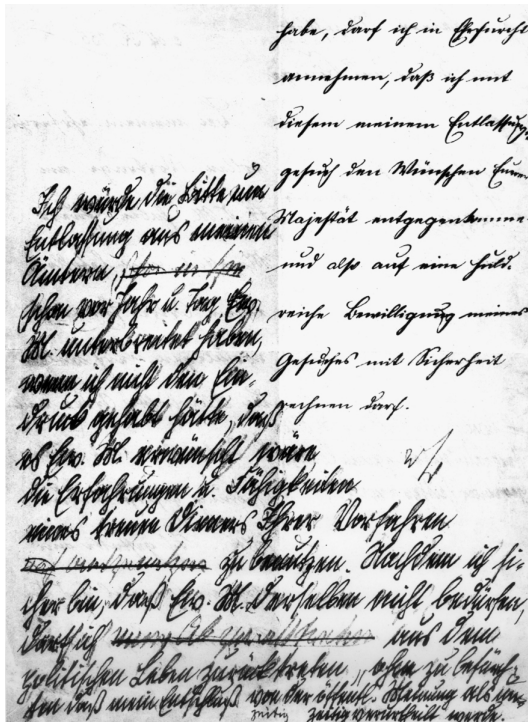 habe, darf ich in Ehrfurcht
annehmen, daß ich mit
diesem meinem Entlassungs-
gesuch den Wünschen Eurer
Majestät entgegenkomme
und also auf eine huld-
reiche Bewilligung meines
Gesuches mit Sicherheit
rechnen darf.
Ich würde die Bitte um
Entlassung aus meinen
Ämtern,
schon vor Jahr u. Tag Ew.
M. unterbreitet haben,
wenn ich nicht den Ein-
druck gehabt hätte, daß
es Ew. M. erwünscht wäre
die Erfahrungen u. Fähigkeiten
eines treuen Dieners Ihrer Vorfahren
zu benutzen. Nachdem ich si-
cher bin, daß Ew. M. derselben nicht bedürfen,
darf ich aus dem
politischen Leben zurücktreten, ohne zu befürch-
ten daß mein Entschluß von der öffentl. Meinung als un-
zeitig verurtheilt werde.